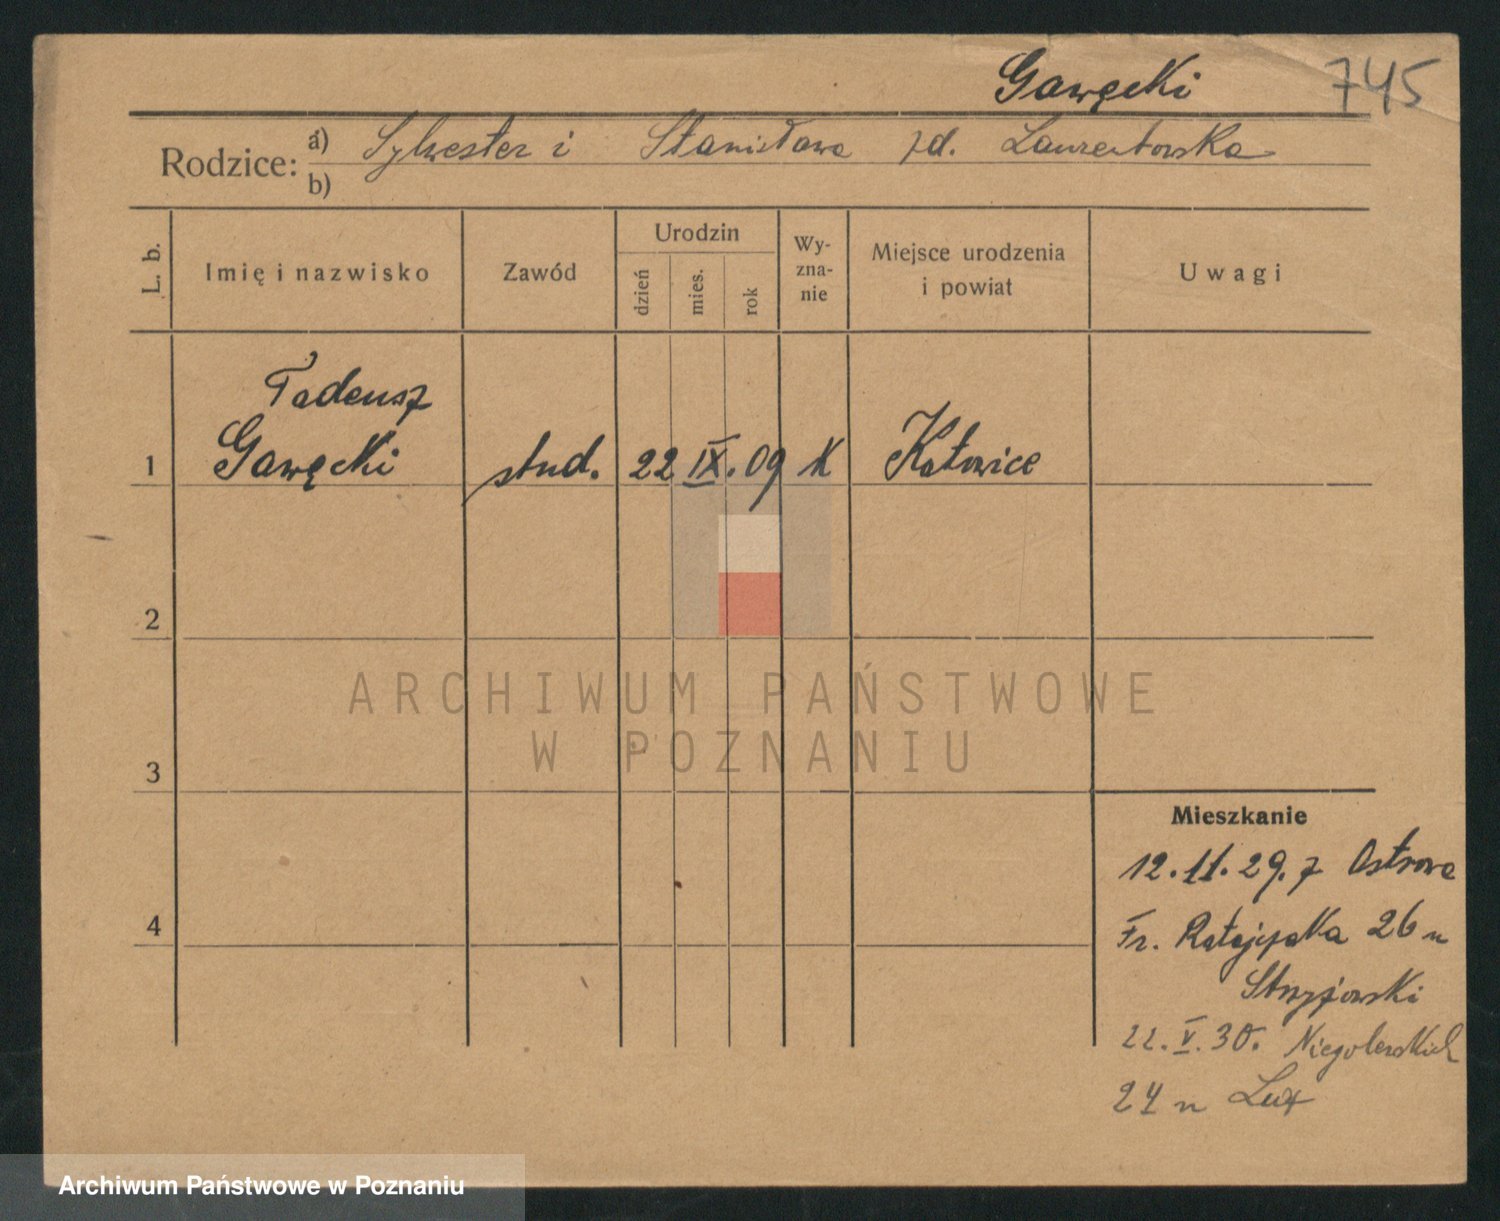 Gawęcki 745
Rodzice: a) Sylwester i Stanisława zd. Laurentowska
b)
L. b. Imię i nazwisko Zawód Urodzin dzień mies. rok Wy-zna-nie Miejsce urodzenia i powiat Uwagi
Tadeusz
1 Gawęcki stud. 22 IX. 09 K Katowice
2
ARCHIWUM PAŃSTWOWE
W POZNANIU
3
Mieszkanie
12.11.29. z Ostrowa
4
Fr. Ratajczaka 26 u
Stryjowski
22.V.30. Niegolewskich
24 u Lux
Archiwum Państwowe w Poznaniu